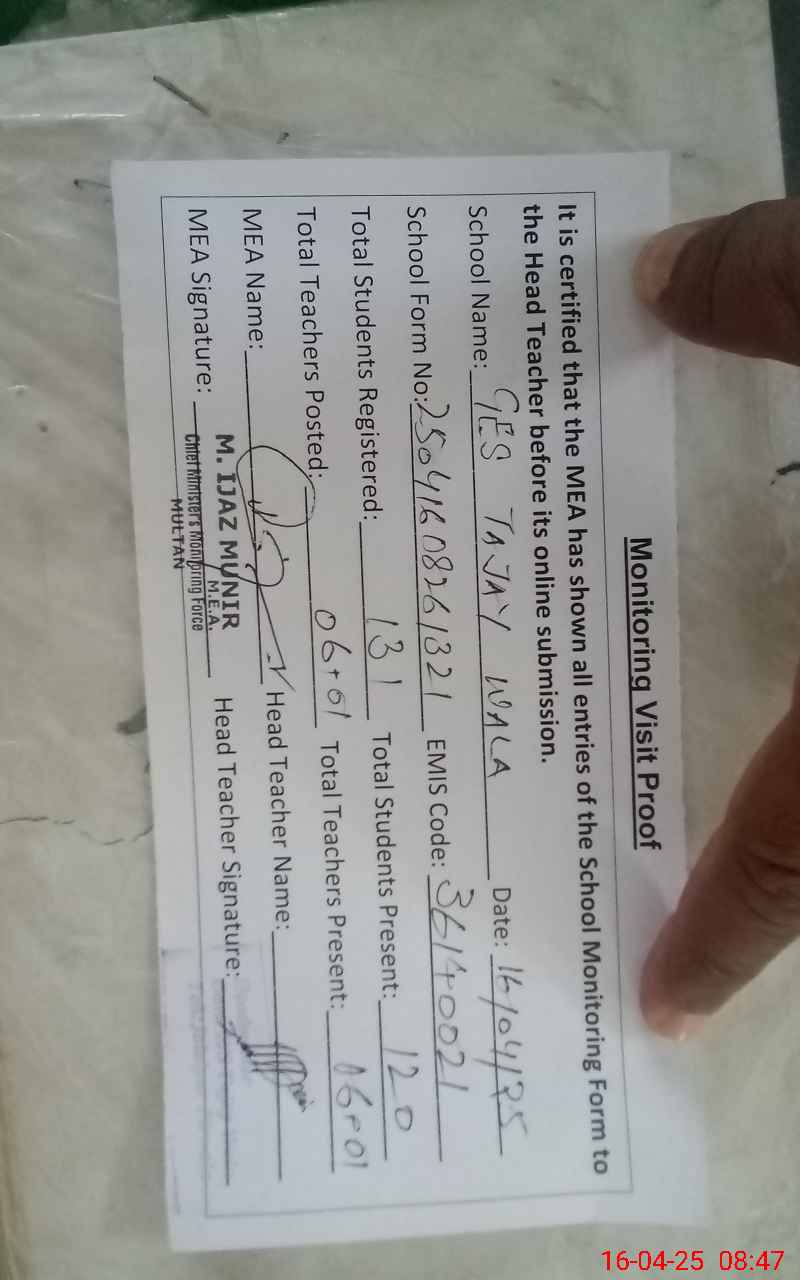 Monitoring Visit Proof
It is certified that the MEA has shown all entries of the School Monitoring Form to
the Head Teacher before its online submission.
School Name: GES TAJAY WALA Date: 16/04/25
School Form No: 25041608261321 EMIS Code: 36140021
Total Students Registered: 131 Total Students Present: 120
Total Teachers Posted: 06+01 Total Teachers Present: 06+01
MEA Name: Head Teacher Name:
M. IJAZ MUNIR
M.E.A.
MEA Signature: Head Teacher Signature:
Chief Minister's Monitoring Force
MULTAN
16-04-25 08:47